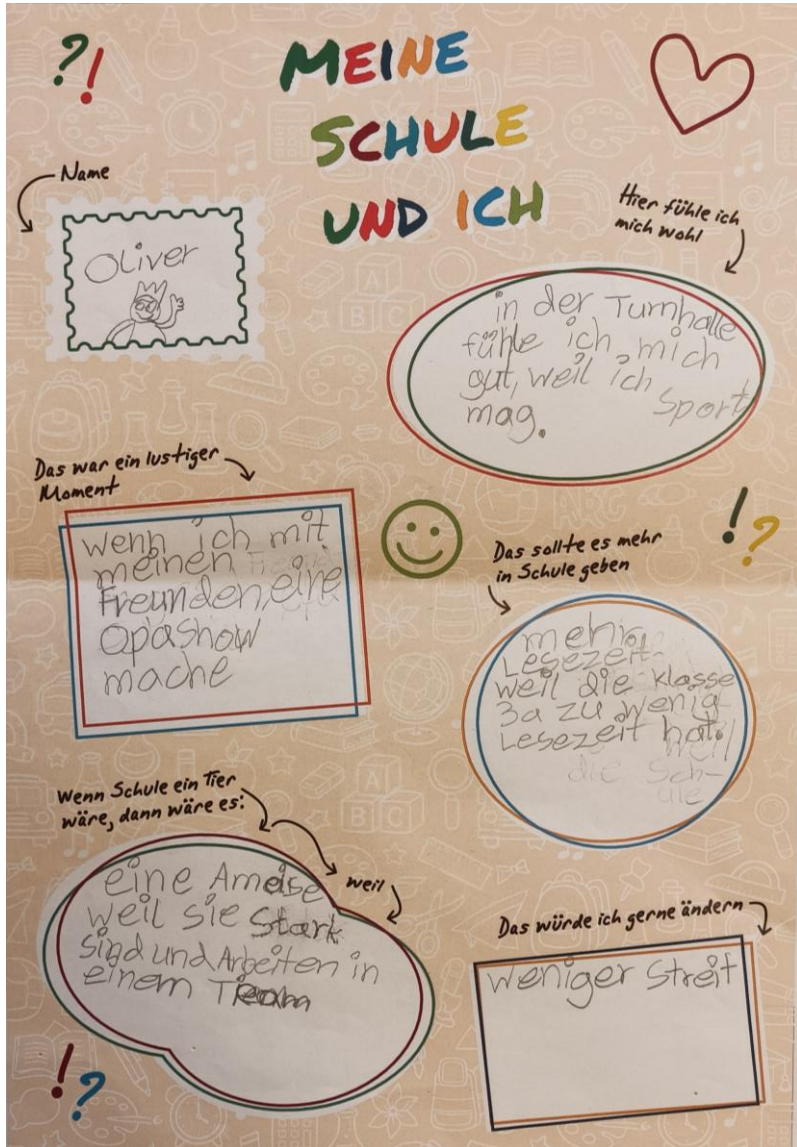 ?!
MEINE
SCHULE
UND ICH
Name
Oliver
Hier fühle ich
mich wohl
in der Turnhalle
fühle ich mich
gut, weil ich
Sport
mag.
Das war ein lustiger
Moment
wenn ich mit
meinen
Freunden, eine
Opashow
mache
!?
Das sollte es mehr
in Schule geben
mehr
Lesezeit
weil die klasse
3a zu wenig
Lesezeit hat.
weil
die Sch-
ule
Wenn Schule ein Tier
wäre, dann wäre es:
weil
eine Ameise
weil sie Stark
sind und Arbeiten in
einem Team
Das würde ich gerne ändern
weniger Streit
!?